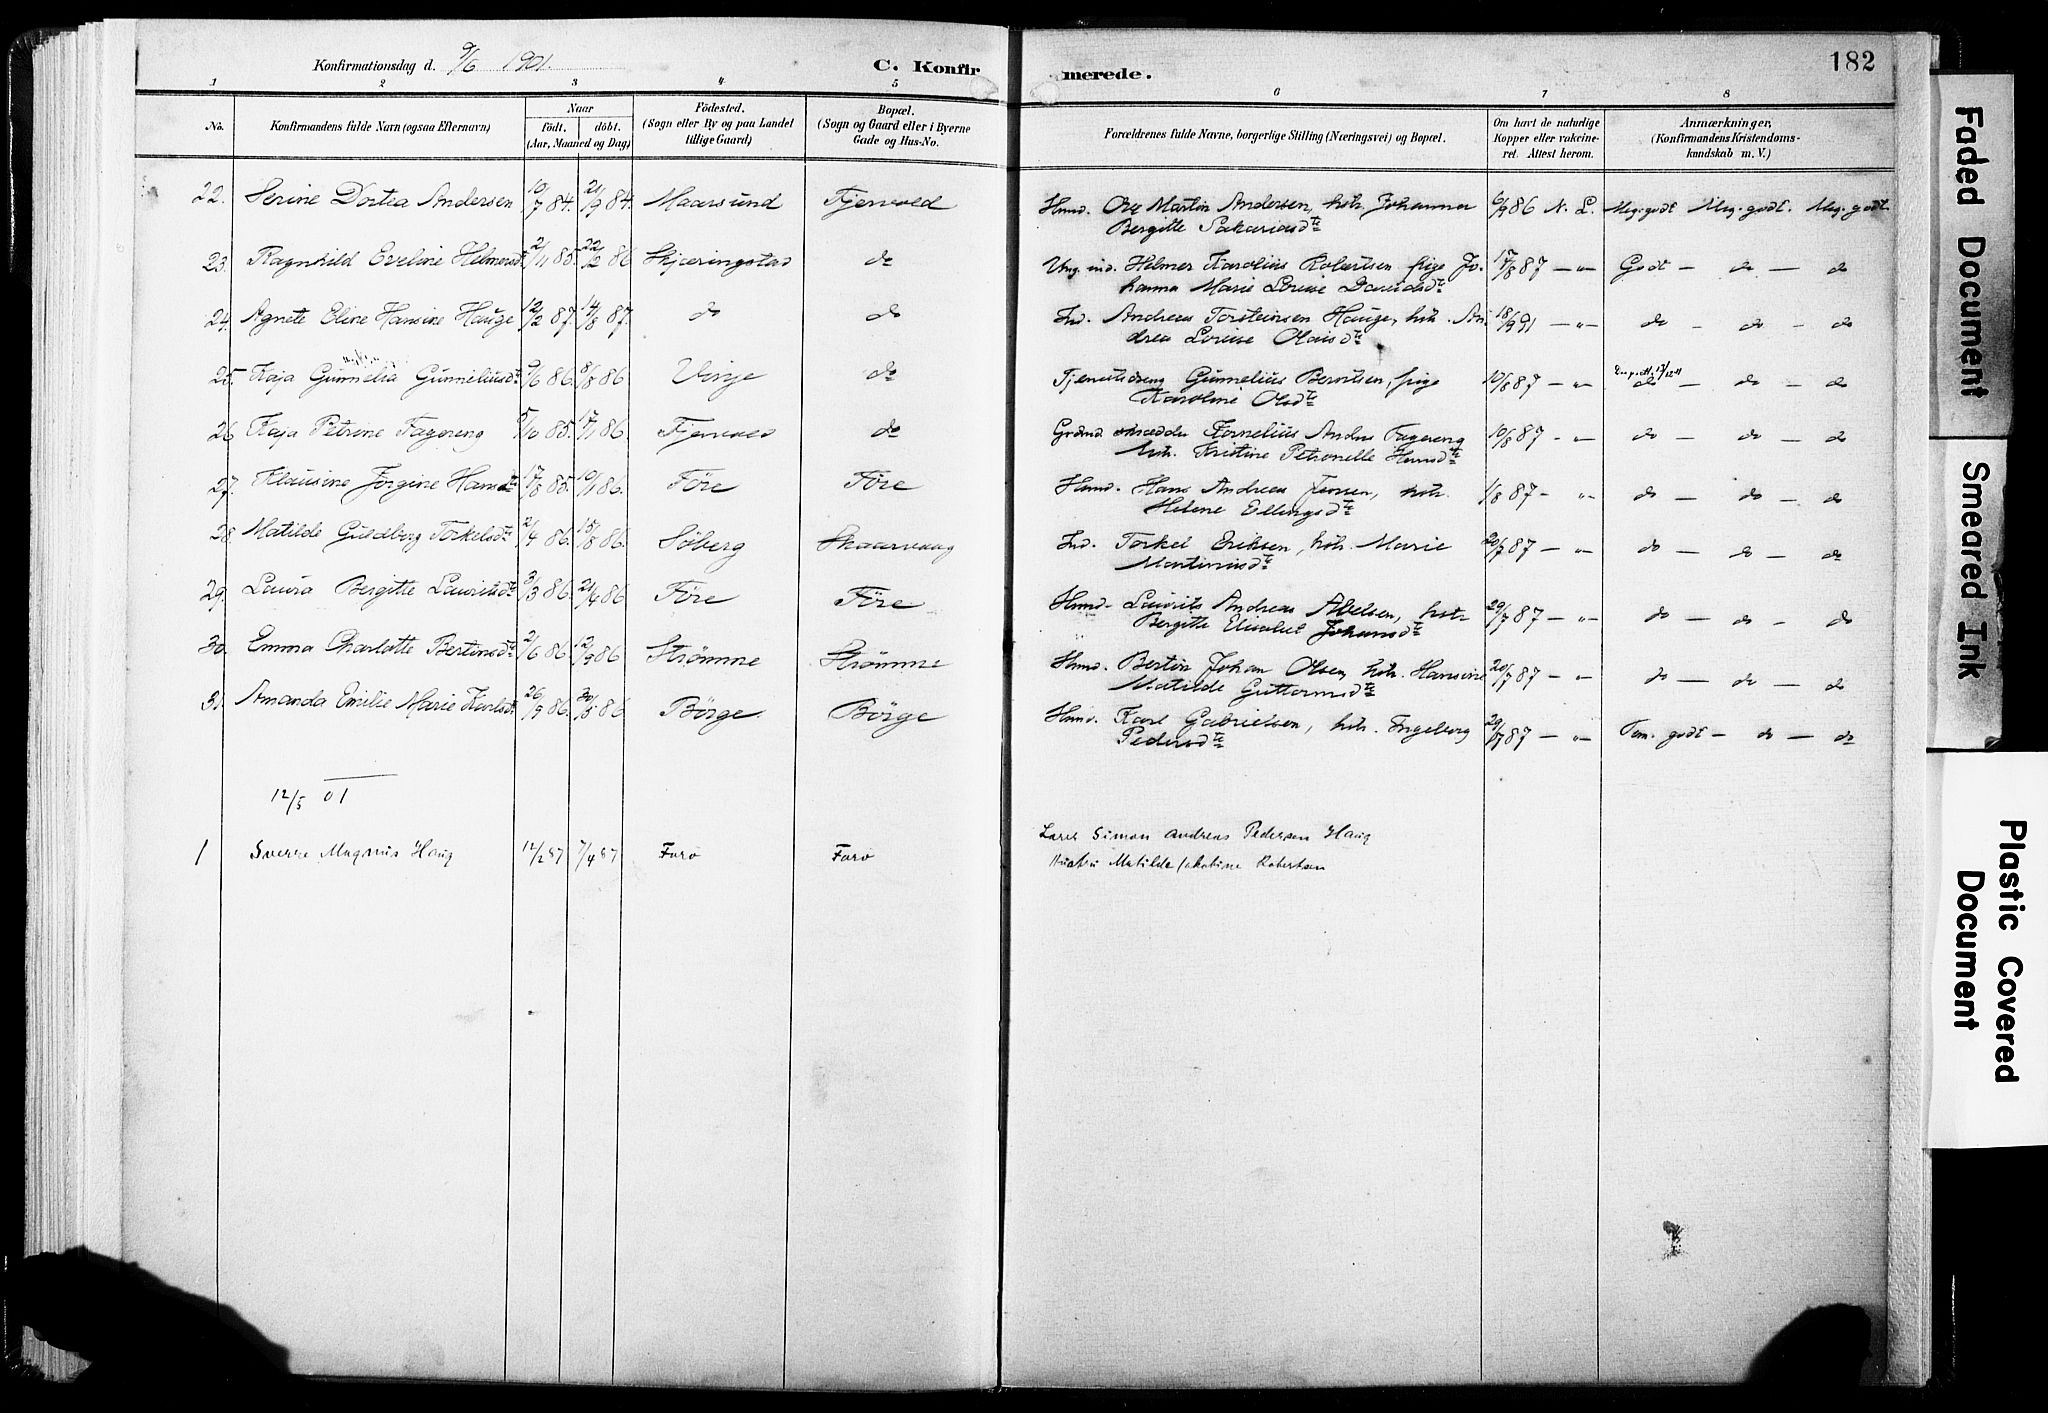 Konfirmationsdag d. 9/6 1901.
C. Konfirmerede.
182
1 2 3 4 5 6 7 8
No.
Konfirmandens fulde Navn (ogsaa Efternavn)
Naar
födt. döbt.
(Aar, Maaned og Dag)
Födested.
(Sogn eller By og paa Landet
tillige Gaard)
Bopæl.
(Sogn og Gaard eller i Byerne
Gade og Hus-No.
Forældrenes fulde Navne, borgerlige Stilling (Næringsvei) og Bopæl.
Om havt de naturlige
Kopper eller vakcine-
ret. Attest herom.
Anmærkninger,
(Konfirmandens Kristendoms-
kundskab m. V.)
22. Serine Dortea Andersen 10/7 84. 21/9 84. Maarsund Fjervold Hmd. Ole Martin Andersen, hstr. Johanna 6/9 86 N. L. Meg. godt Meg. godt. Meg. godt.
Bergitte Sakariasdtr
23. Ragnhild Eveline Helmersdtr 2/11 85. 22/2 86 Skjeringstad do Ung. ind. Helmer Karolius Robertsen pige Jo- 17/8 87 — " Godt — do — do
hanna Marie Lovise Danielsdtr
24. Agnete Eline Hansine Hauge 12/2 87. 14/8 87. do do Ind. Andreas Torsteinsen Hauge, hstr. An- 18/9 91 — " do — do — do
drea Lovise Olaisdtr
25. Kaja Gunnelia Gunneliusdtr /6 86. 8/8 86 Vinje do Tjenestedreng Gunnelius Berntsen, pige 10/8 87 — " do — do — do
Karoline Olsdtr
26 Kaja Petrine Fagereng 5/10 85. 17/1 86. Fjervold do Grdmd. skrædder Kornelius Anders Fagereng 10/8 87 — " do — do — do
hstr. Kristine Petronelle Hansdtr
27. Klausine Jörgine Hansdtr 17/8 85. 10/1 86. Före Före Hmd. Hans Andreas Jensen, hstr. 1/8 87 — " do — do — do
Helene Ellingsdtr
28. Matilde Guldborg Torkelsdtr 2/4 86. 15/8 86. Söberg Skaarvaag Ind. Torkel Eriksen, hstr. Marie 20/7 87 — " do — do — do
Martinusdtr
29. Laura Bergitte Lauritsdtr 3/3 86. 21/4 86 Före Före Hmd. Laurits Andreas Abelsen, hstr 29/7 87 — " do — do — do
Bergitte Elisabet Johansdtr
30. Emma Charlotte Bertinsdtr 2/6 86. 12/9 86 Strömme Strömme Hmd. Bertin Johan Olsen, hstr. Hansine 20/7 87 — " do — do — do
Matilde Guttormsdtr
31. Amanda Emilie Marie Karlsdtr 26/9 86. 30/5 86 Börge Börge Hmd. Karl Gabrielsen, hstr. Ingeborg 29/7 87 — " Tem. godt — do — do
Pedersdtr
12/5 01
Lærer Simon Andreas Pedersen Haug
1 Sverre Magnus Haug 12/2 87 7/4 87 Forø Forø Hustru Matilde Jakobine Robertsen
Faded Document
Smeared Ink
Plastic Covered
Document